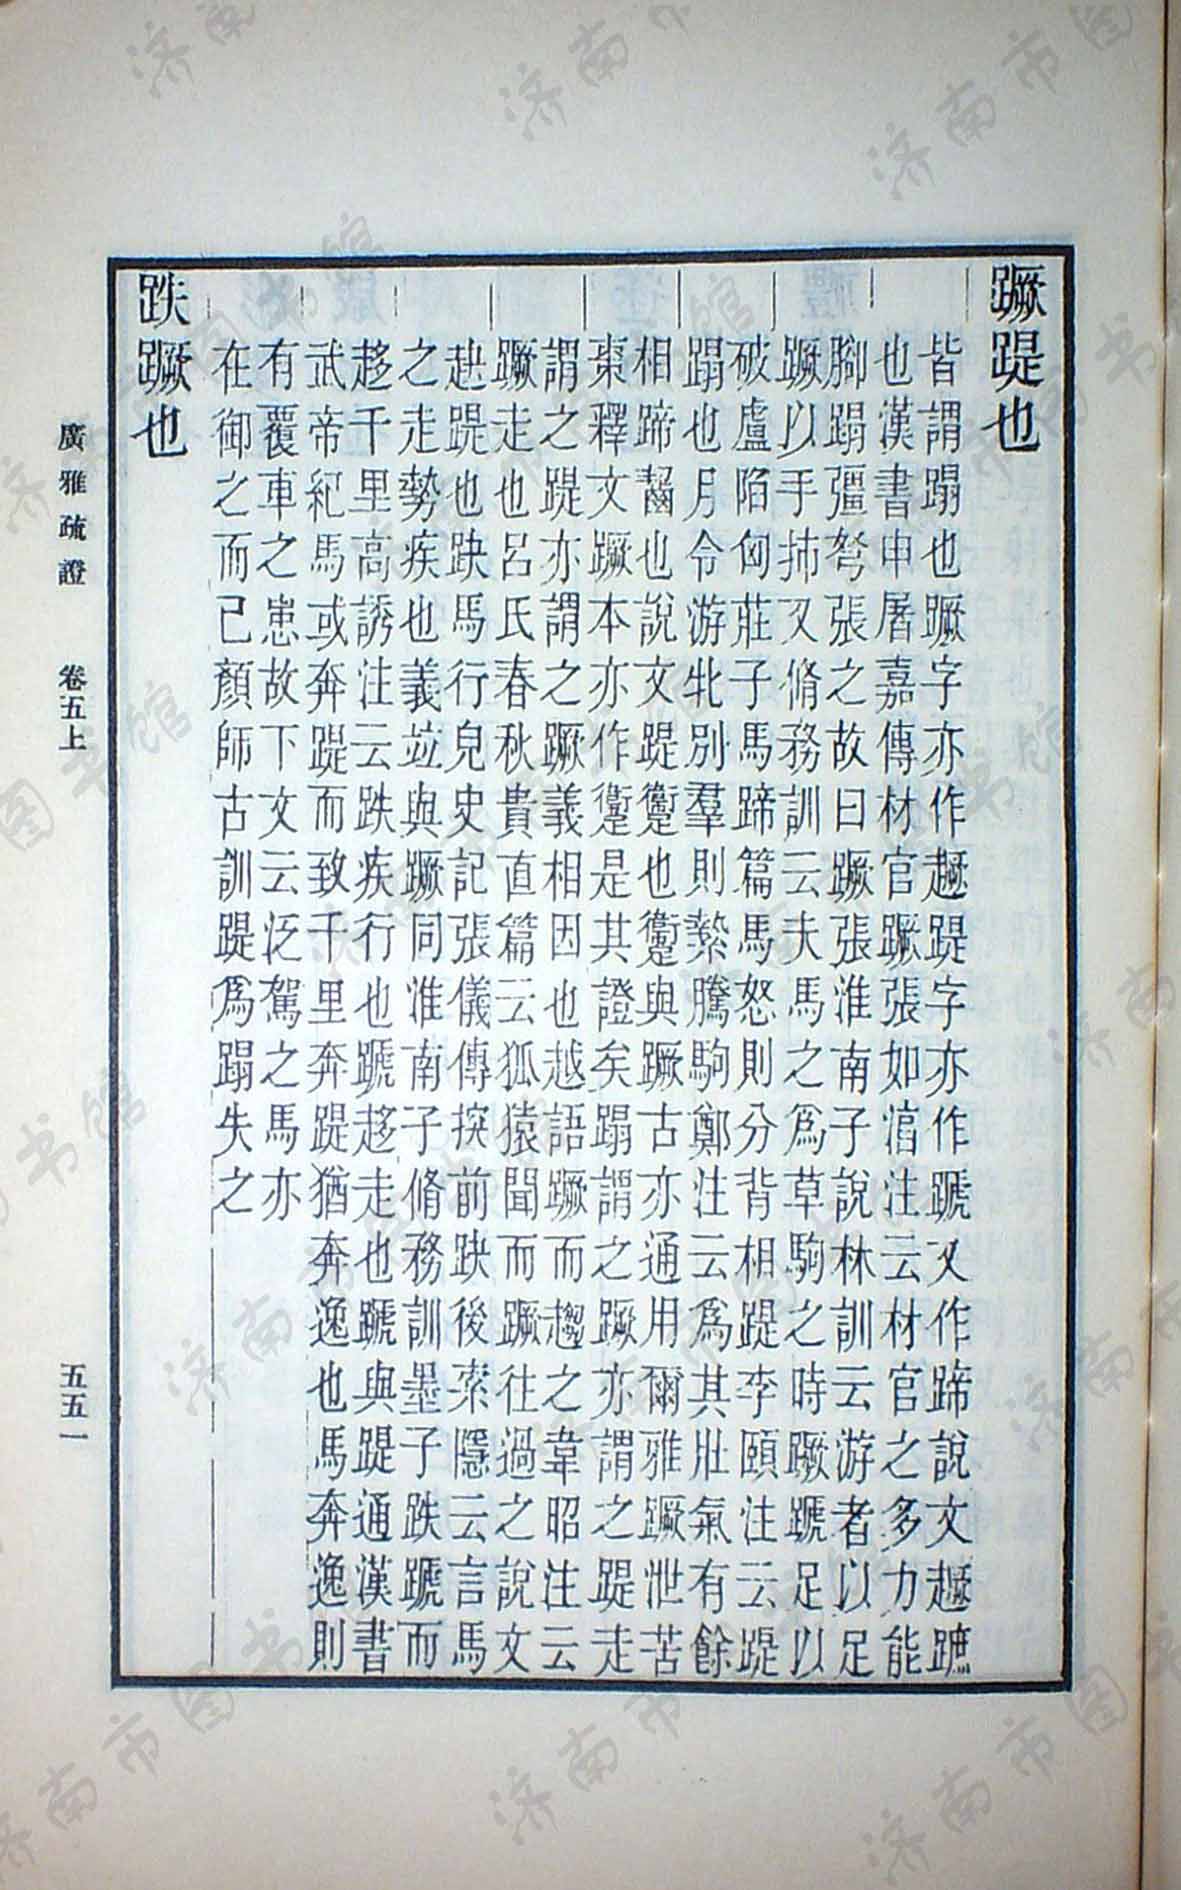 蹶踶也
皆謂蹋也蹶字亦作趰踶字亦作蹏又作蹄說文趰蹠
也漢書申屠嘉傳材官蹶張如湻注云材官之多力能
腳蹋彊弩張之故曰蹶張淮南子說林訓云游者以足
蹶以手抪又脩務訓云夫馬之爲草駒之時蹶蹏足以
破盧陷匈莊子馬蹄篇馬怒則分背相踶李頤注云踶
蹋也月令游牝別羣則縶騰駒鄭注云爲其壯氣有餘
相蹄齧也說文踶躗也躗與蹶古亦通用爾雅蹶泄苦
棗釋文蹶本亦作躗是其證矣蹋謂之蹶亦謂之踶走
謂之踶亦謂之蹶義相因也越語蹶而趨之韋昭注云
蹶走也呂氏春秋貴直篇云狐猿聞而蹶往過之說文
趹踶也趹馬行皃史記張儀傳探前趹後索隱云言馬
之走勢疾也義竝與蹶同淮南子脩務訓墨子跌蹏而
趍千里高誘注云跌疾行也蹏趍走也蹏與踶通漢書
武帝紀馬或奔踶而致千里奔踶猶奔逸也馬奔逸則
有覆車之患故下文云泛駕之馬亦
在御之而已顏師古訓踶爲蹋失之
跌蹶也
廣雅疏證 卷五上 五五一